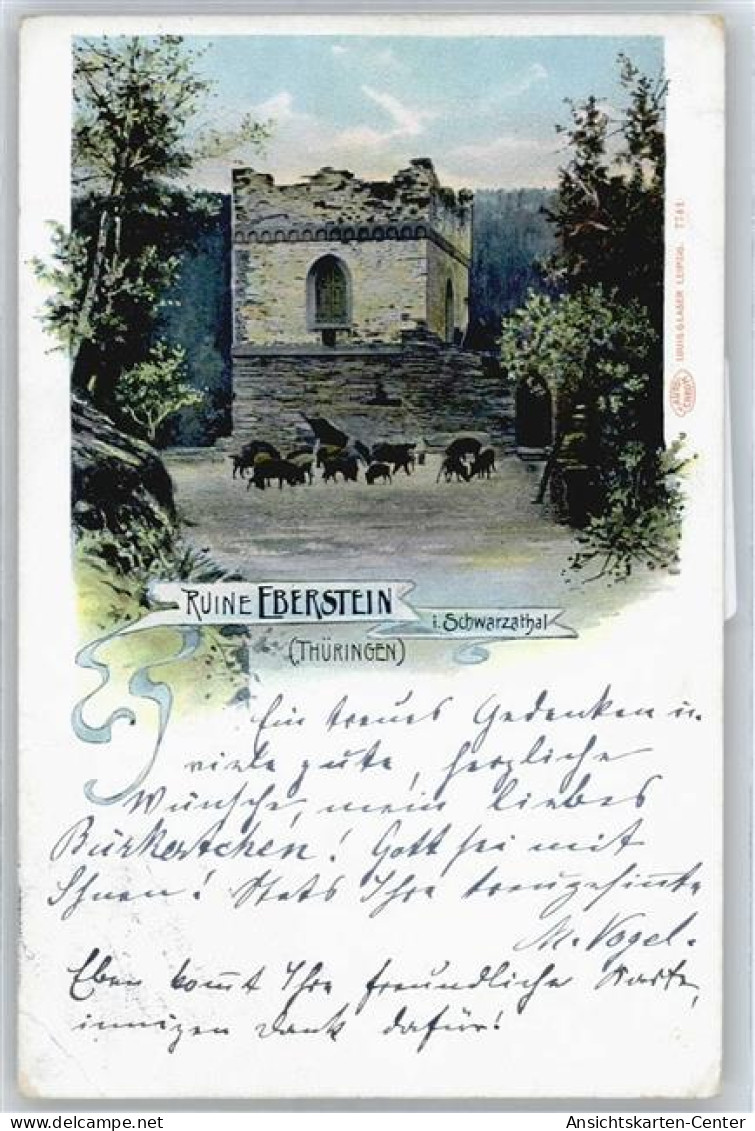 RUINE EBERSTEIN
i. Schwarzathal
(THÜRINGEN)
LOUIS GLASER LEIPZIG. 7781
Ein treues Gedenken u.
viele gute, herzliche
Wünsche, mein liebes
Gott sei mit
Ihnen! Stets Ihre treugesinnte
M. Vogel.
Eben kommt Ihre freundliche Karte,
innigen Dank dafür!
Ansichtskarten-Center